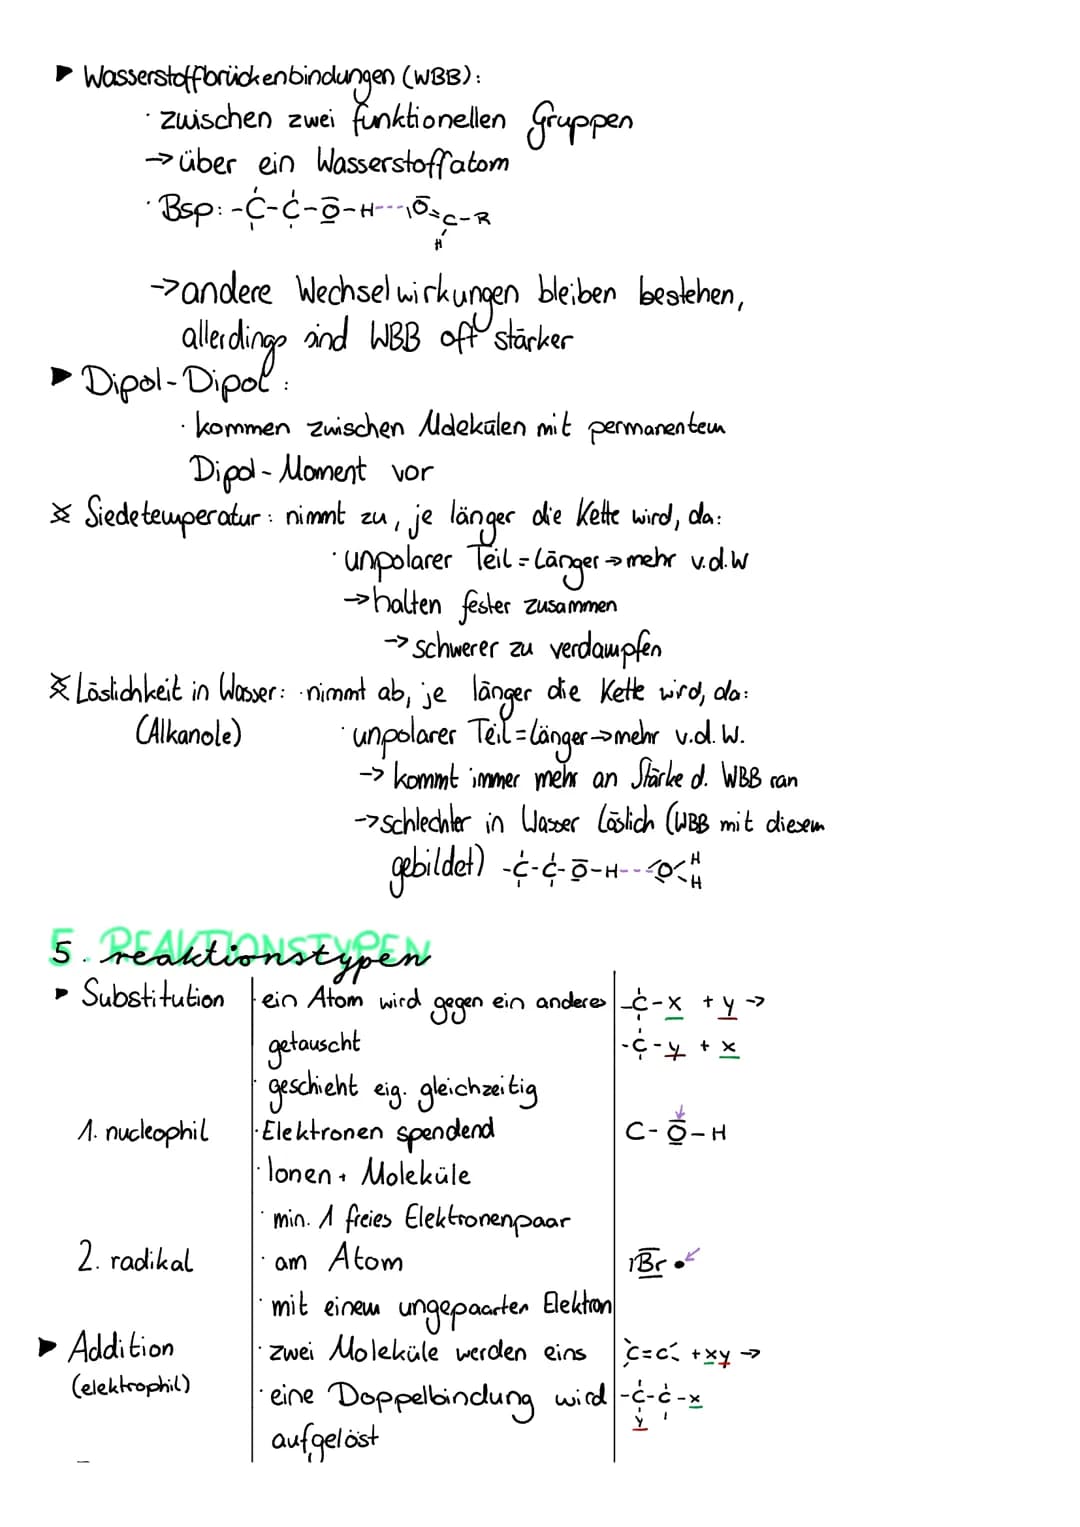 ▶ Wasserstoffbrückenbindungen (WBB):
· zwischen zwei funktionellen Gruppen
→ über ein Wasserstoffatom
· Bsp: -C-C-O-H---|O=C-R
H
→ andere Wechselwirkungen bleiben bestehen,
allerdings sind WBB oft stärker
▶ Dipol-Dipol:
· kommen zwischen Molekülen mit permanentem
Dipol-Moment vor
※ Siedetemperatur: nimmt zu, je länger die Kette wird, da:
· unpolarer Teil = länger → mehr v.d.W
→ halten fester zusammen
→ schwerer zu verdampfen
※ Löslichkeit in Wasser: · nimmt ab, je länger die Kette wird, da:
(Alkanole) · unpolarer Teil = länger → mehr v.d.W.
→ kommt immer mehr an Stärke d. WBB ran
→ schlechter in Wasser löslich (WBB mit diesem
gebildet) -C-C-O-H---O-H
H
5. REAKTIONSTYPEN
reaktionstypen
▶ Substitution · ein Atom wird gegen ein anderes -C-x + y →
getauscht -C-y + x
· geschieht eig. gleichzeitig
1. nucleophil · Elektronen spendend C-O-H
· Ionen + Moleküle
· min. 1 freies Elektronenpaar
2. radikal · am Atom |Br•
· mit einem ungepaarten Elektron
▶ Addition · zwei Moleküle werden eins C=C + xy →
(elektrophil) · eine Doppelbindung wird -C-C-x
aufgelöst y